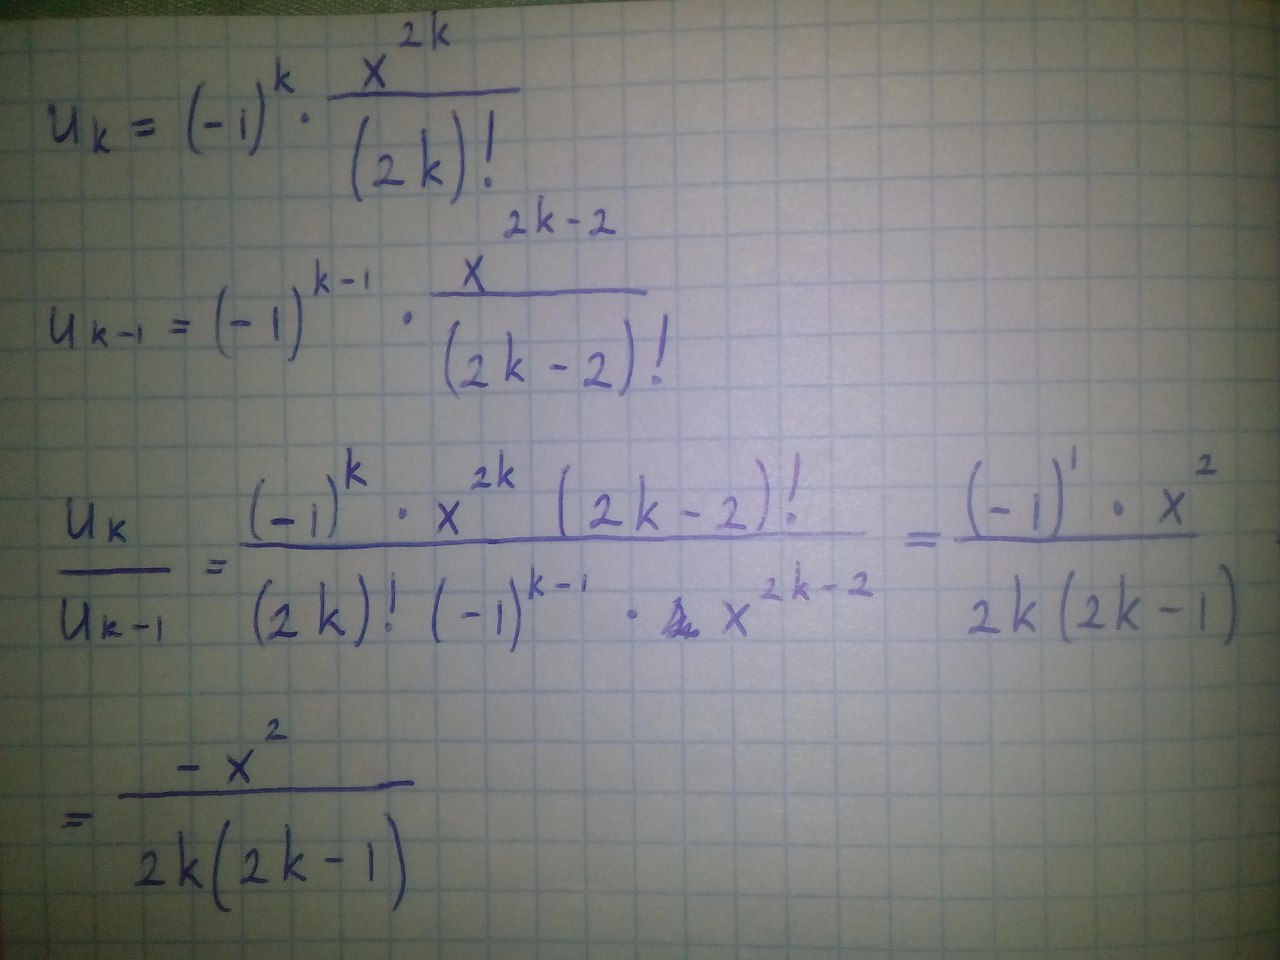 u_k = (-1)^k · x^{2k} / (2k)!
u_{k-1} = (-1)^{k-1} · x^{2k-2} / (2k-2)!
u_k / u_{k-1} = (-1)^k · x^{2k} (2k-2)! / (2k)! (-1)^{k-1} · x^{2k-2} = (-1)^1 · x^2 / 2k(2k-1)
= -x^2 / 2k(2k-1)